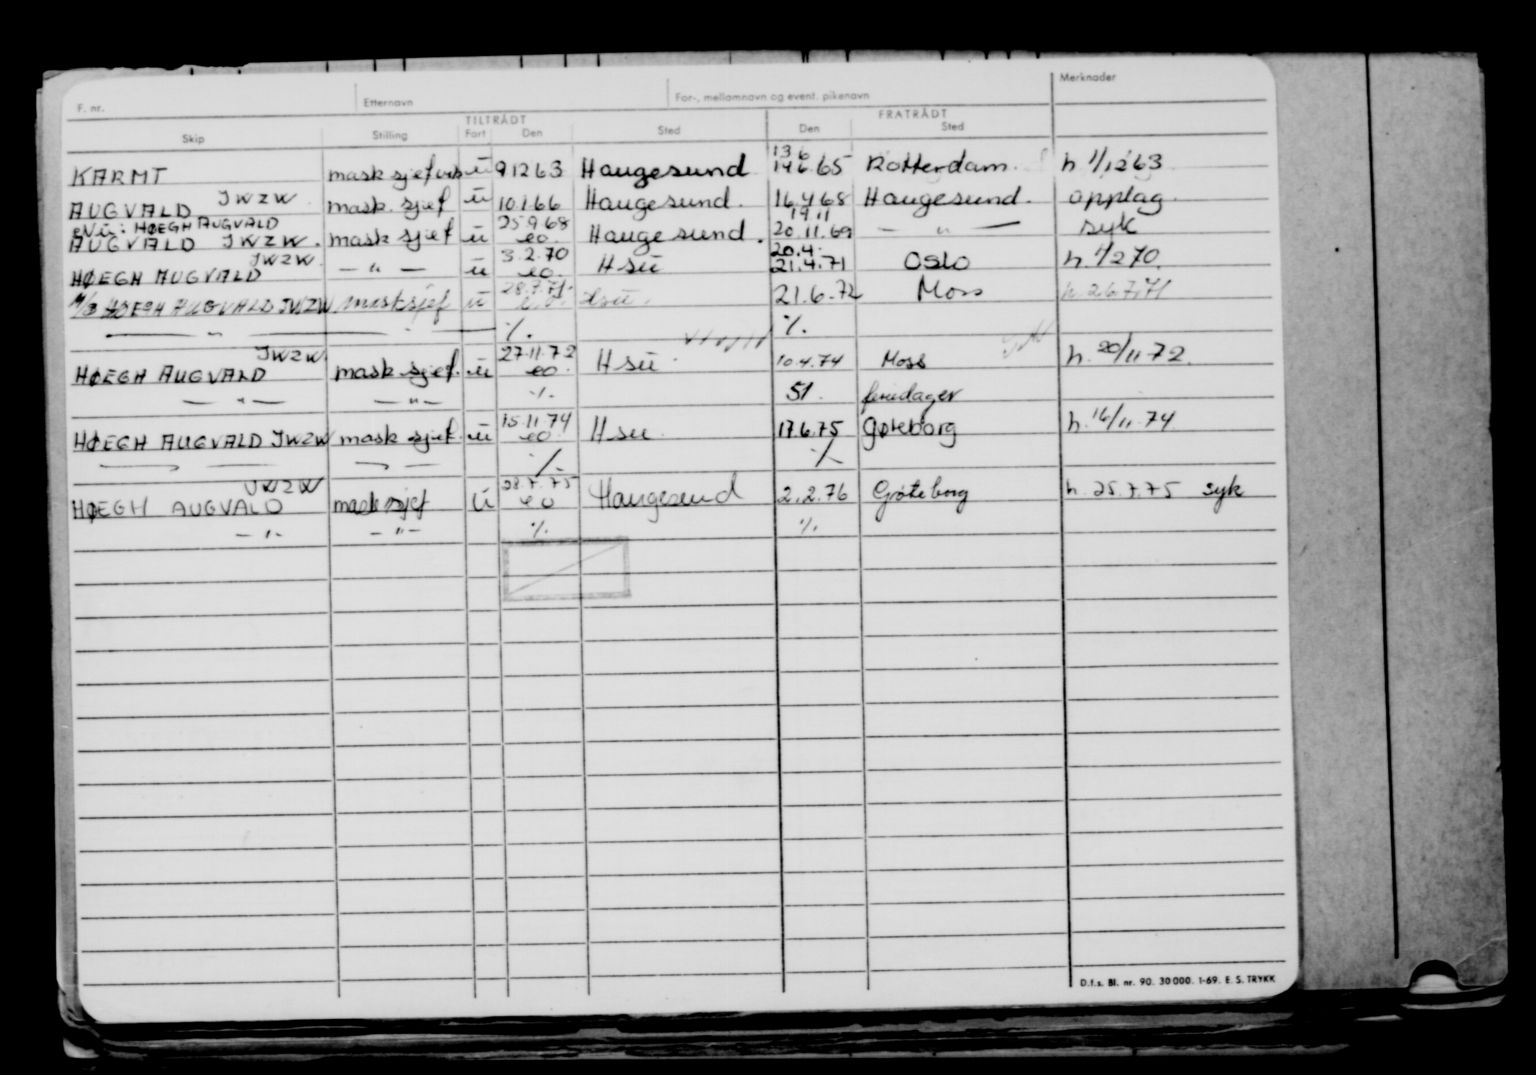 F. nr. Etternavn For-, mellomnavn og event. pikenavn Merknader
TILTRÅDT FRATRÅDT
Skip Stilling Fart Den Sted Den Sted
13 6
KARMT mask sjef ü 9 12 63 Haugesund 14 6 65 Rotterdam. h 1/12 63
JWZW
AUGVALD mask. sjef ü 10.1.66 Haugesund. 16.4 68 Haugesund. opplag
HØEGH AUGVALD 25 9 68 19 11
AUGVALD JWZW. mask sjef ü eo. Haugesund. 20.11.69 — " — syk
JWZW. 3.2.70 20.4.
HØEGH AUGVALD — " — ü eo. Hsü 21.4.71 Oslo h. 1/2 70.
28.7.71.
M/S HØEGH AUGVALD JWZW mask sjef ü e.o. Hsü. 21.6.72 Moss h. 26.7.71
— " — ·/. ·/.
JWZW 27.11.72
HØEGH AUGVALD mask sjef. ü eo. Hsü 10.4.74 Moss h. 20/11 72.
— " — — " — ·/. 51. feriedager
15.11.74
HØEGH AUGVALD JWZW mask sjef. ü eo. Hsü. 17.6.75 Gøteborg h. 16/11.74
·/. ·/.
JWZW 28.7.75
HØEGH AUGVALD mask sjef ü eo Haugesund 2.2.76 Gøteborg h. 25.7.75 syk
— " — — " — ·/. ·/.
D.f.s. Bl. nr. 90. 30 000. 1-69. E. S. TRYKK